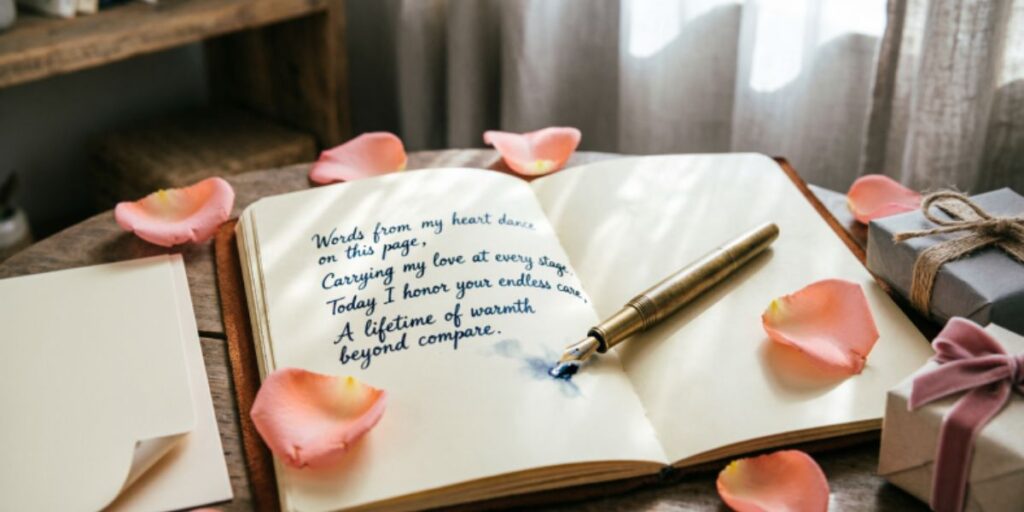 Words from my heart dance
on this page,
Carrying my love at every stage.
Today I honor your endless care,
A lifetime of warmth
beyond compare.